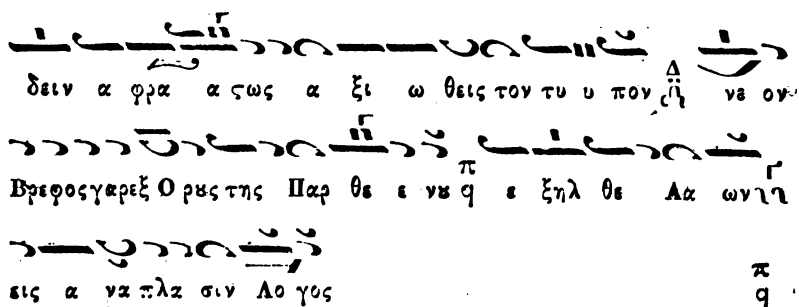 δειν α φρα α ςως α ξι ω θεις τον τυ υ πον Δ νε ον
Βρεφος γαρ εξ Ο ρȣς της Παρ θε ε νȣ π q ε ξηλ θε Λα ων Γ
εις α να πλα σιν Λο γος π q